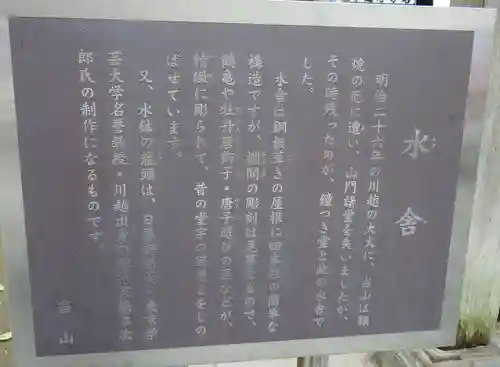 水舎
明治二十六年の川越の大火に、当山は類
焼の厄に遭い、山門諸堂を失いましたが、
その時残ったのが、鐘つき堂と此の水舎で
した。
水舎は銅板葺きの屋根に四本柱の簡単な
構造ですが、欄間の彫刻は見事なもので、
鶴亀や牡丹唐獅子・唐子遊びの図などが、
精緻に彫られて、昔の堂宇の
ばせています。
又、水鉢の龍頭は、
芸大学名誉教授・川越出身の
郎氏の制作になるものです。
当山